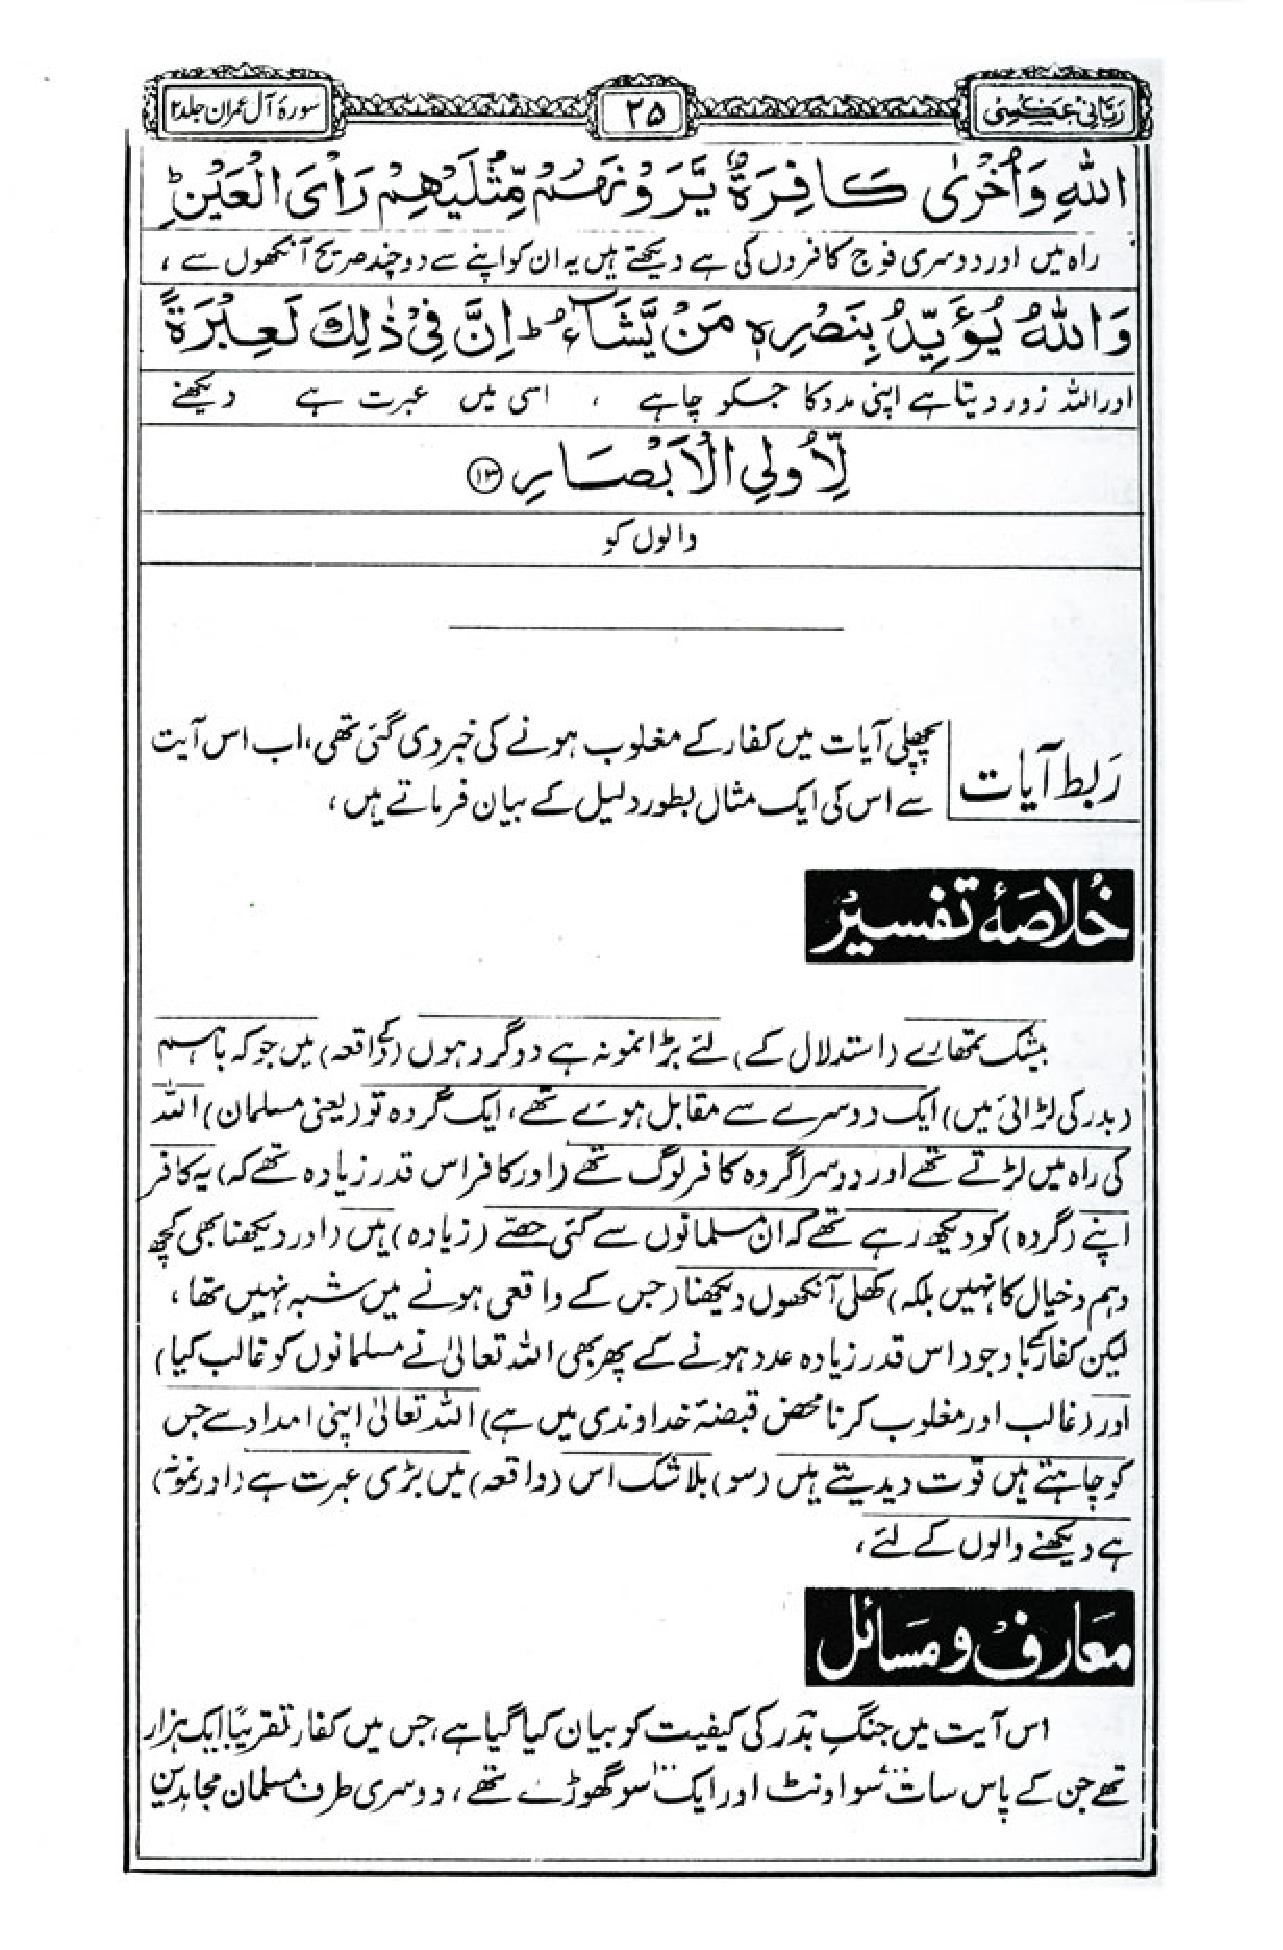 ربانی عکسی
۲۵
سورۂ آل عمران جلد ۲
اللهِ وَاُخْرٰى كَافِرَةٌ يَّرَوْنَهُمْ مِّثْلَيْهِمْ رَاْىَ الْعَيْنِ ط
راہ میں اور دوسری فوج کافروں کی ہے دیکھتے ہیں یہ ان کو اپنے سے دو چند صریح آنکھوں سے ،
وَاللهُ يُؤَيِّدُ بِنَصْرِهٖ مَنْ يَّشَآءُ ط اِنَّ فِيْ ذٰلِكَ لَعِبْرَةً
اور اللہ زور دیتا ہے اپنی مدد کا جسکو چاہے ، اسی میں عبرت ہے دیکھنے
لِّاُولِي الْاَبْصَارِ ﴿۱۳﴾
والوں کو
ربط آیات
پچھلی آیات میں کفار کے مغلوب ہونے کی خبر دی گئی تھی، اب اس آیت
سے اس کی ایک مثال بطور دلیل کے بیان فرماتے ہیں ،
خُلاصۂ تفسیر
بیشک تمھارے (استدلال کے) لئے بڑا نمونہ ہے دو گروہوں (کے واقعہ) میں جو کہ باہم
(بدر کی لڑائی میں) ایک دوسرے سے مقابل ہوئے تھے، ایک گروہ تو (یعنی مسلمان) اللہ
کی راہ میں لڑتے تھے اور دوسرا گروہ کافر لوگ تھے (اور کافر اس قدر زیادہ تھے کہ) یہ کافر
اپنے (گروہ) کو دیکھ رہے تھے کہ ان مسلمانوں سے کئی حصّے (زیادہ) ہیں (اور دیکھنا بھی کچھ
وہم و خیال کا نہیں بلکہ) کھلی آنکھوں دیکھنا (جس کے واقعی ہونے میں شبہ نہیں تھا ،
لیکن کفار کے باوجود اس قدر زیادہ عدد ہونے کے پھر بھی اللہ تعالیٰ نے مسلمانوں کو غالب کیا)
اور (غالب اور مغلوب کرنا محض قبضۂ خداوندی میں ہے) اللہ تعالیٰ اپنی امداد سے جس
کو چاہتے ہیں قوت دیدیتے ہیں (سو) بلاشک اس (واقعہ) میں بڑی عبرت ہے (اور نمونہ)
ہے دیکھنے والوں کے لئے ،
مَعارف و مَسائل
اس آیت میں جنگِ بَدر کی کیفیت کو بیان کیا گیا ہے، جس میں کفار تقریبًا ایک ہزار
تھے جن کے پاس سات۷۰۰سو اونٹ اور ایک۱۰۰سو گھوڑے تھے ، دوسری طرف مسلمان مجاہدین